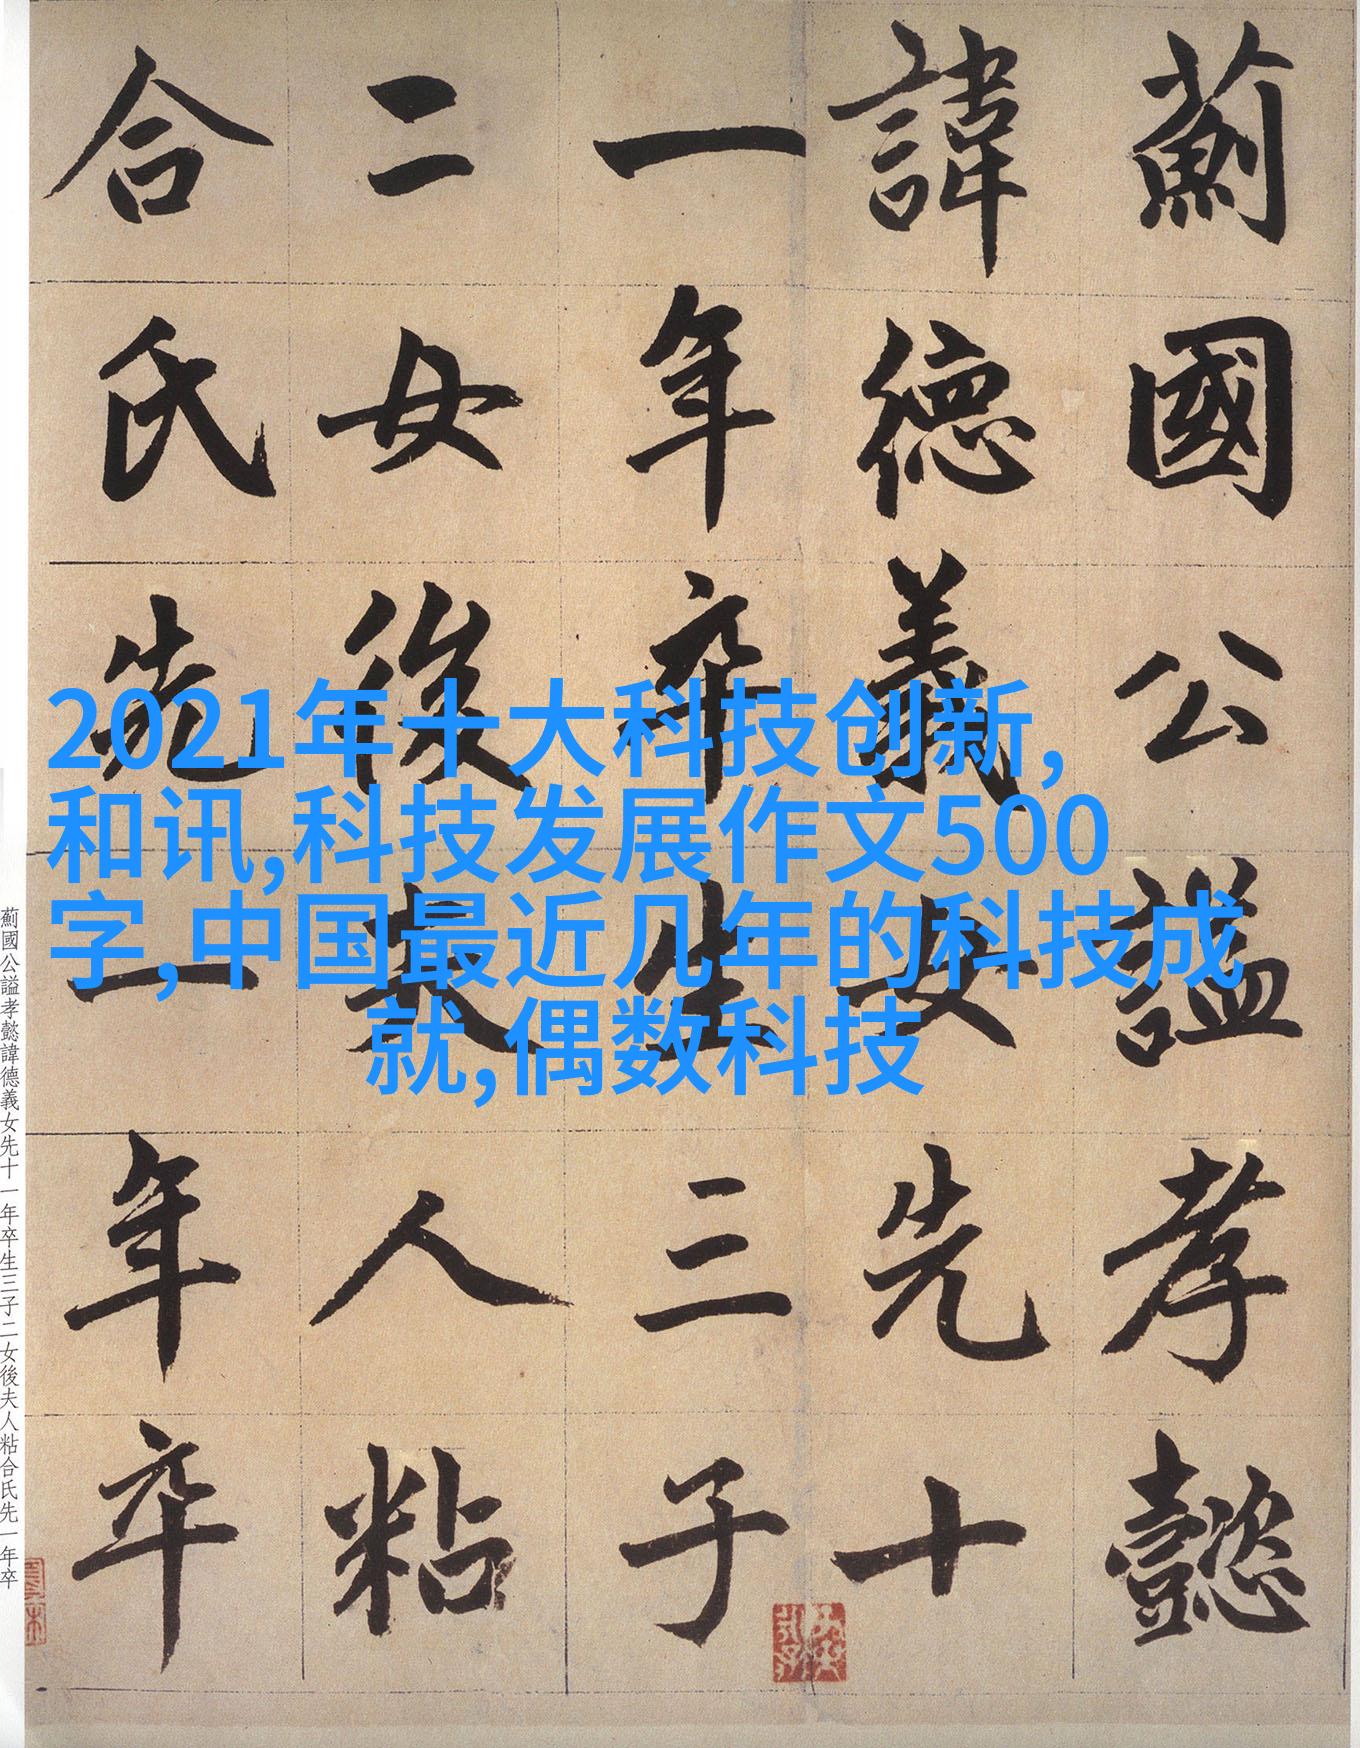 薊國公謚孝懿
諱德義女先十
一年卒生三子
二女後夫人粘
合氏先一年卒
2021年十大科技创新,
和讯,科技发展作文500
字,中国最近几年的科技成
就,偶数科技
薊國公謚孝懿諱德義女先十一年卒生三子二女後夫人粘合氏先一年卒